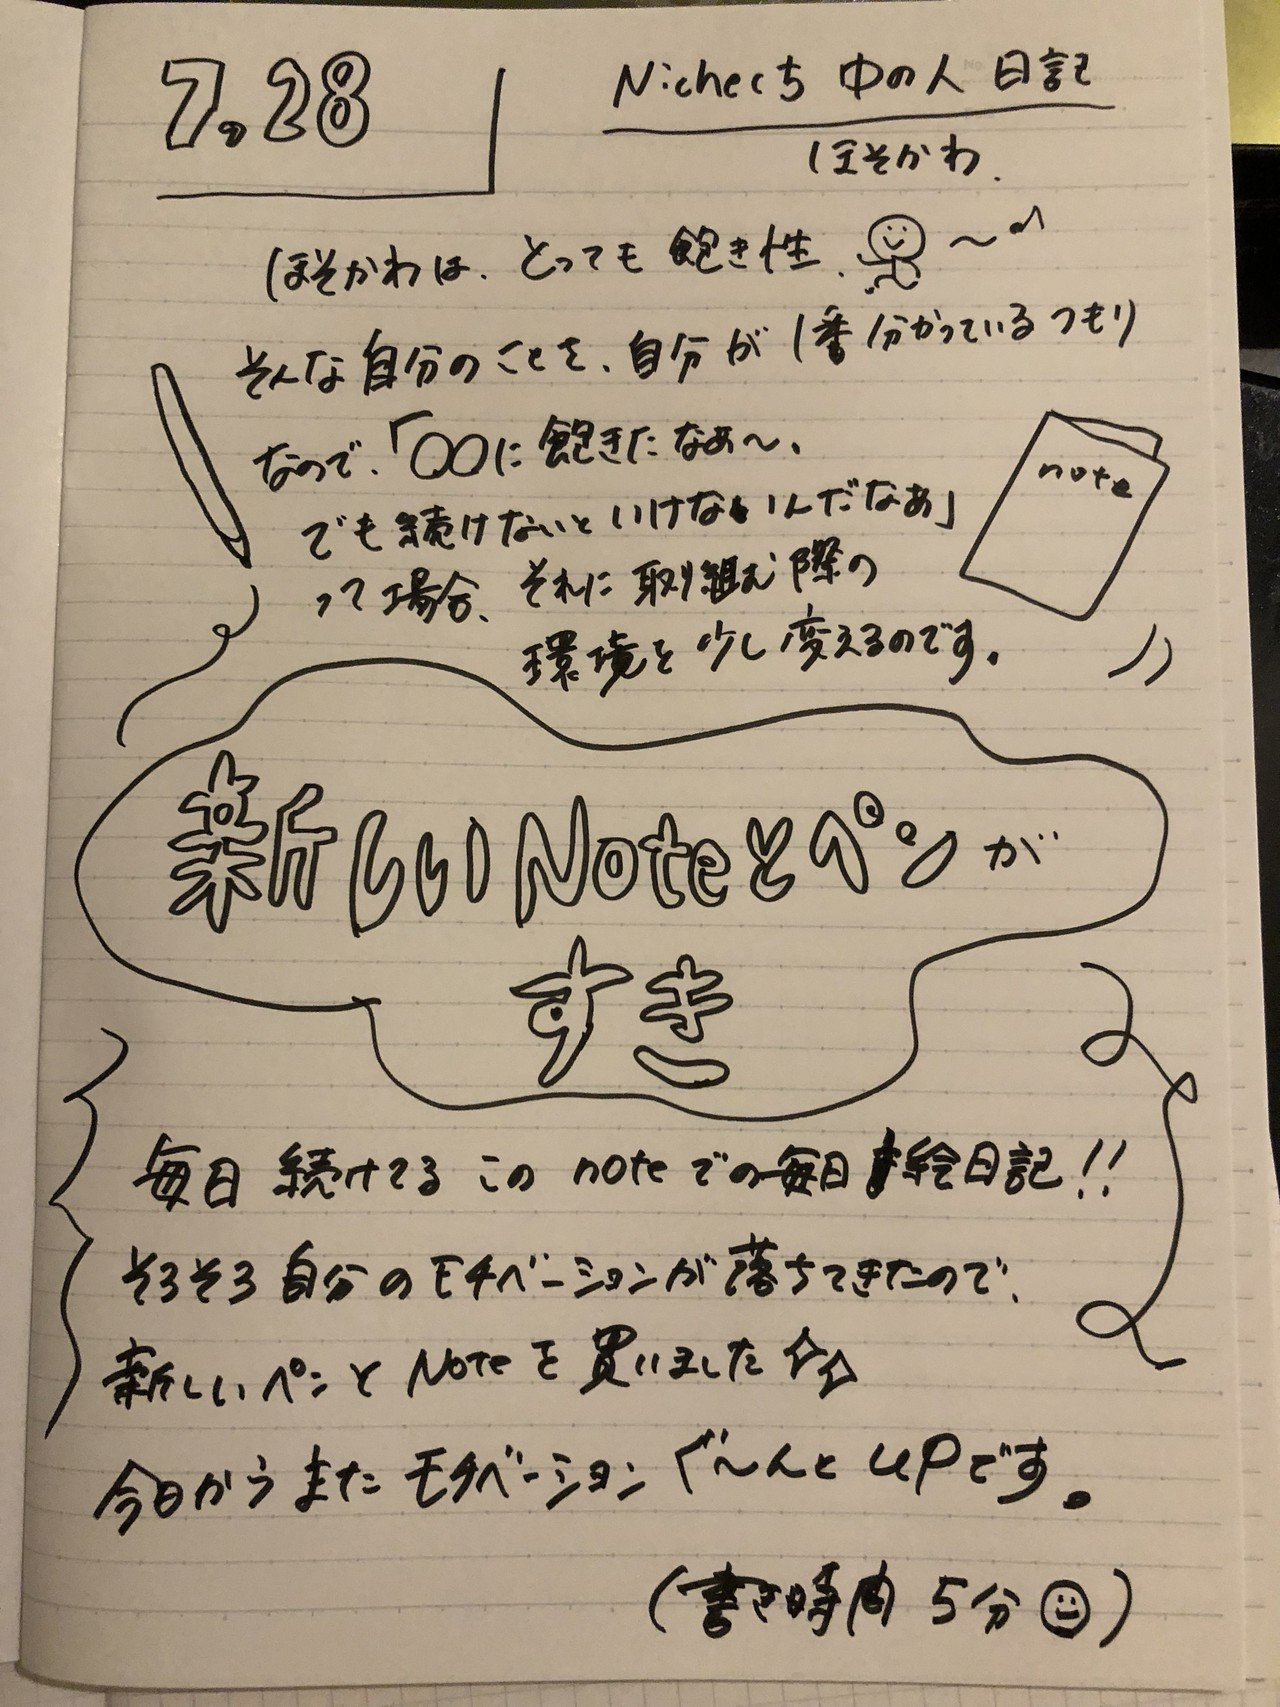 7.28
Nicherくち 中の人 日記
ほそかわ.
ほそかわは、とっても 飽き性、
そんな自分のことを、自分が1番分かっているつもり
なので、「〇〇に飽きたなぁ〜、
でも続けないといけないんだなぁ」
って場合、それに取り組む際の
環境を少し変えるのです。
note
新しいNoteとペンが
すき
毎日 続けてる この noteでの毎日絵日記!!
そろそろ自分のモチベーションが落ちてきたので、
新しいペンと Noteを買いました☆☆
今日からまた モチベーション ぐ〜んとUPです。
(書き時間 5分☺)